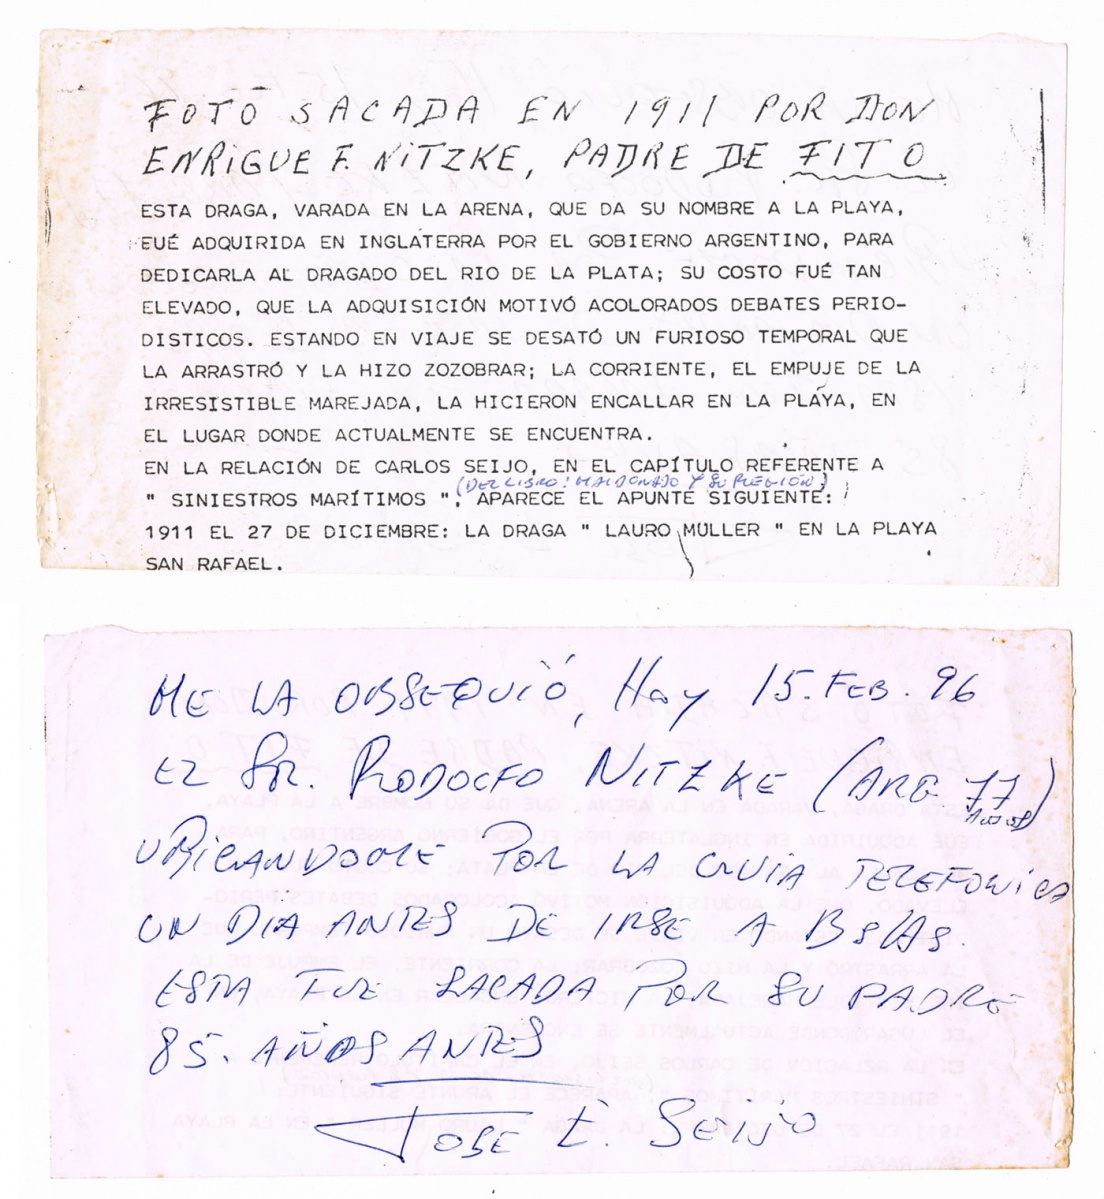 FOTO SACADA EN 1911 POR DON
ENRIQUE F. NITZKE, PADRE DE FITO
ESTA DRAGA, VARADA EN LA ARENA, QUE DA SU NOMBRE A LA PLAYA,
FUÉ ADQUIRIDA EN INGLATERRA POR EL GOBIERNO ARGENTINO, PARA
DEDICARLA AL DRAGADO DEL RIO DE LA PLATA; SU COSTO FUÉ TAN
ELEVADO, QUE LA ADQUISICIÓN MOTIVÓ ACOLORADOS DEBATES PERIO-
DISTICOS. ESTANDO EN VIAJE SE DESATÓ UN FURIOSO TEMPORAL QUE
LA ARRASTRÓ Y LA HIZO ZOZOBRAR; LA CORRIENTE, EL EMPUJE DE LA
IRRESISTIBLE MAREJADA, LA HICIERON ENCALLAR EN LA PLAYA, EN
EL LUGAR DONDE ACTUALMENTE SE ENCUENTRA.
EN LA RELACIÓN DE CARLOS SEIJO, EN EL CAPÍTULO REFERENTE A
(DEL LIBRO: MALDONADO Y SU REGIÓN)
" SINIESTROS MARÍTIMOS ", APARECE EL APUNTE SIGUIENTE:
1911 EL 27 DE DICIEMBRE: LA DRAGA " LAURO MULLER " EN LA PLAYA
SAN RAFAEL.
ME LA OBSEQUIÓ, Hoy 15. FEB. 96
EL SR. RODOLFO NITZKE (ARG 77 AÑOS)
UBICANDOME POR LA GUIA TELEFONICA
UN DIA ANTES DE IRSE A BS/AS.
ESTA FUE SACADA POR SU PADRE
85 AÑOS ANTES
JOSE E. SEIJO